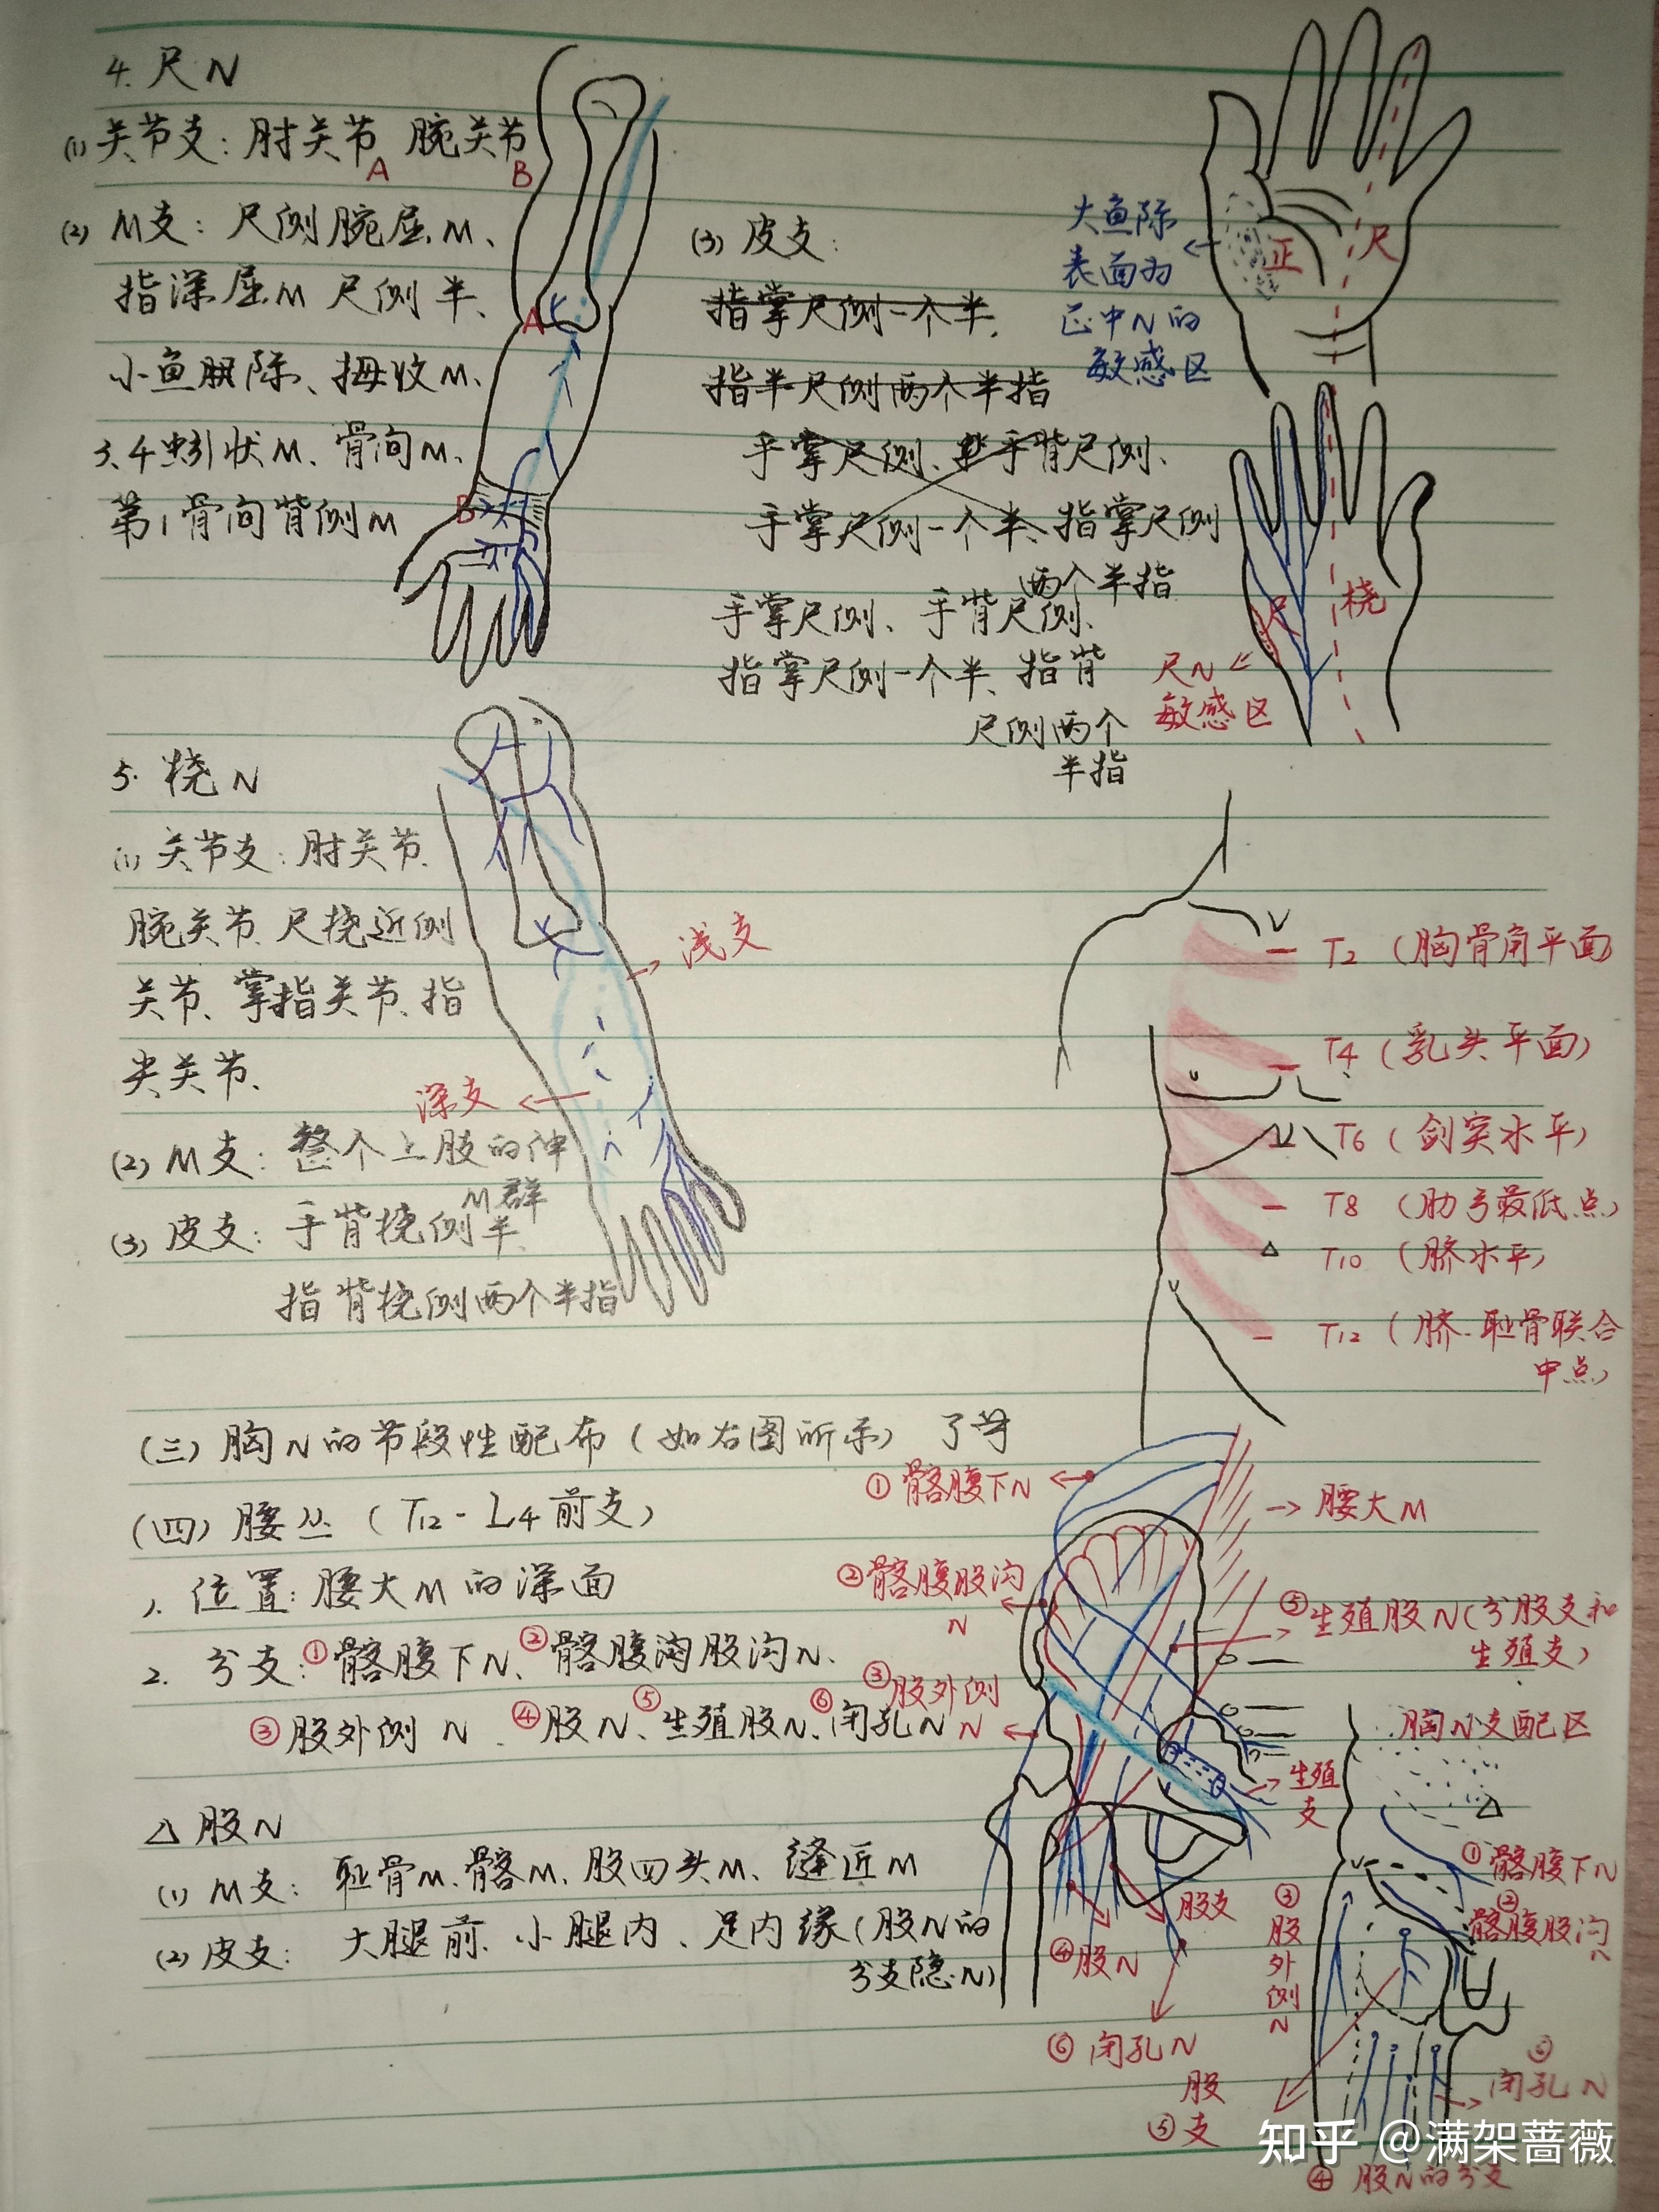 4. 尺N
(1) 关节支：肘关节 腕关节
A
B
(2) M支：尺侧腕屈M、
指深屈M 尺侧半、
小鱼际、拇收M、
3.4蚓状M、骨间M、
第1骨间背侧M
A
B
(3) 皮支：
指掌尺侧一个半、
指半尺侧两个半指
手掌尺侧、手背尺侧、
手掌尺侧一个半、指掌尺侧
两个半指
手掌尺侧、手背尺侧、
指掌尺侧一个半、指背
尺侧两个
半指
大鱼际
表面为
正中N的
敏感区
正
尺
尺
桡
尺N
敏感区
5. 桡N
(1) 关节支：肘关节
腕关节、尺桡近侧
关节、掌指关节、指
尖关节、
(2) M支：整个上肢的伸
M群
(3) 皮支：手背桡侧半、
指背桡侧两个半指
浅支
深支
T2 (胸骨角平面)
T4 (乳头平面)
T6 (剑突水平)
T8 (肋弓最低点)
T10 (脐水平)
T12 (脐-耻骨联合
中点)
(三) 胸N的节段性配布 (如右图所示)
(四) 腰丛 (T12-L4前支)
1. 位置：腰大M的深面
2. 分支：①髂腹下N、②髂腹沟股沟N、
③股外侧N、④股N、⑤生殖股N、⑥闭孔N
△股N
(1) M支：耻骨M、髂M、股四头M、缝匠M
(2) 皮支：大腿前、小腿内、足内缘(股N的
分支隐N)
①髂腹下N
腰大M
②髂腹股沟
N
⑤生殖股N(分股支和
生殖支)
③股外侧
N
生殖
支
股支
④股N
⑥闭孔N
胸N支配区
①髂腹下N
②
髂腹股沟
N
③
股
外
侧
N
⑥
闭孔N
股
⑤支
④股N的分支
知乎 @满架蔷薇